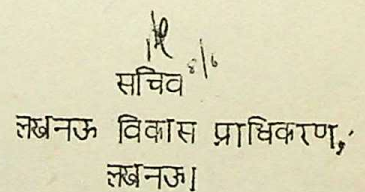 8/6
सचिव
लखनऊ विकास प्राधिकरण,
लखनऊ।